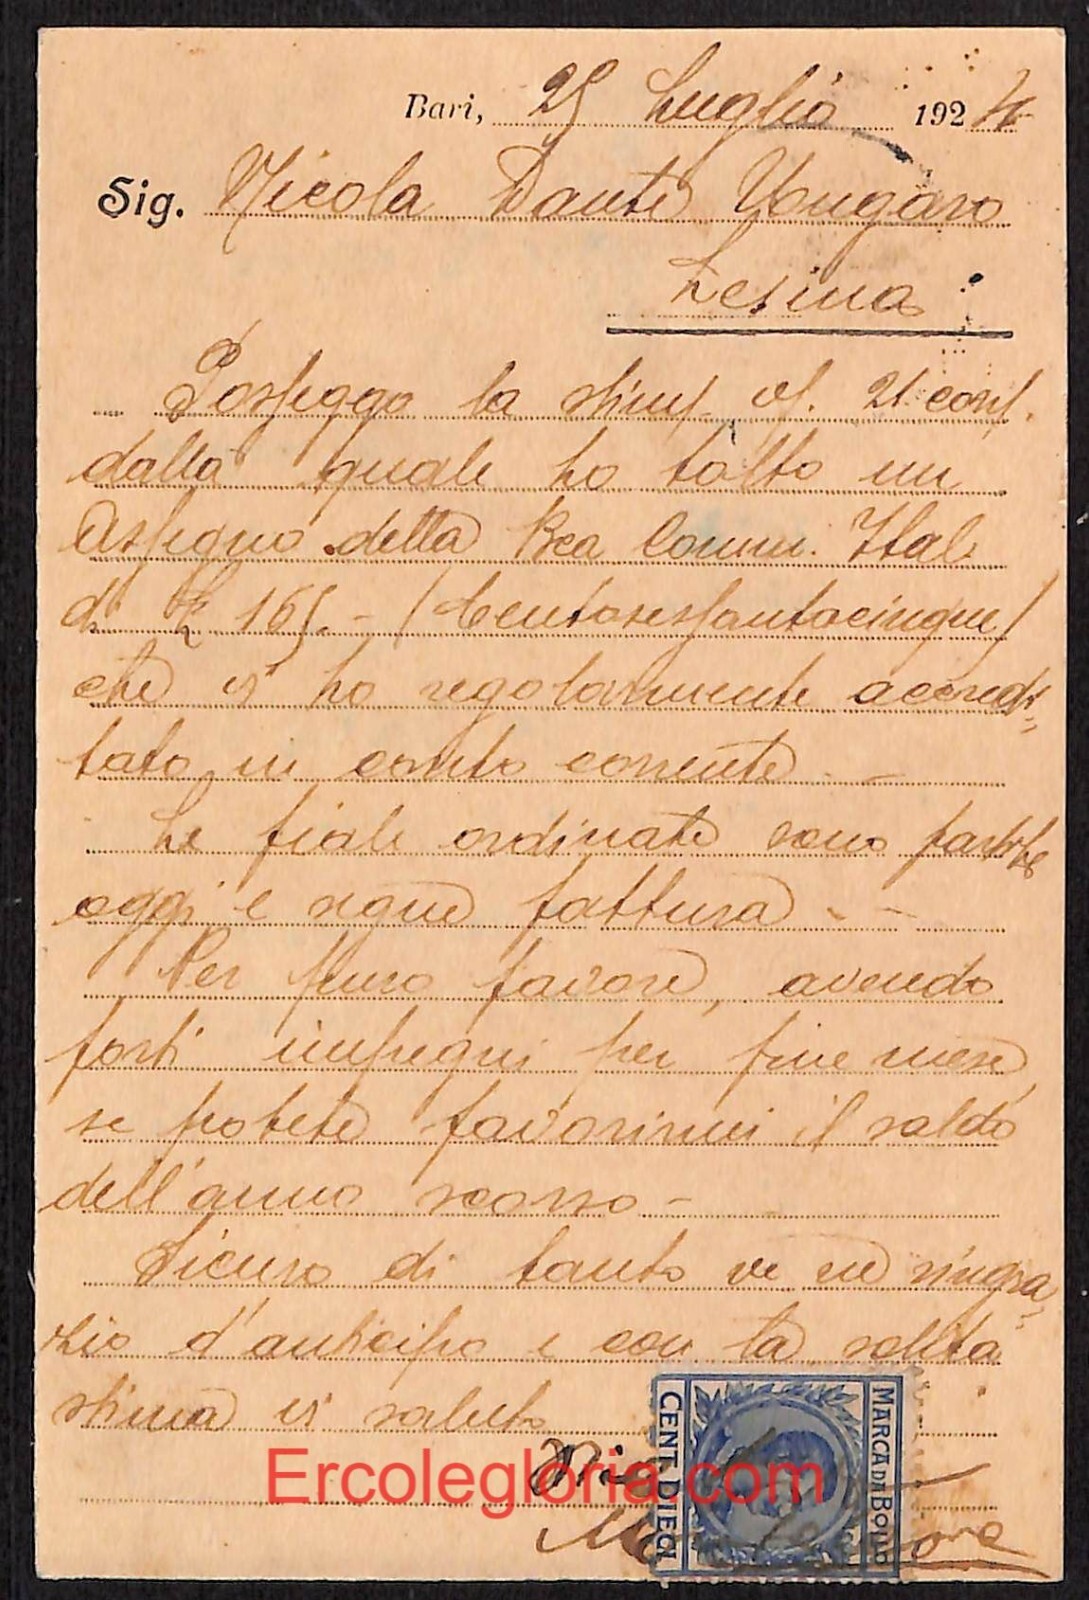 Bari, 25 Luglio 1924
Sig. Nicola Dante Vougaro
Lesina
Posseggo la stim/ 21 corr/.
dalla quale ho tolto un
Assegno della Bca Comm. Ital.
di L 165.- / Centosessantacinque /
che vi ho regolarmente accredi=
tato in conto corrente. -
Le fiale ordinate sono partite
oggi e segue fattura - -
Per puro favore, avendo
forti impegni per fine mese,
se potete favorirmi il saldo
dell'anno scorso -
Sicuro di tanto ve ne ringra=
zio d'anticipo e con la solita
stima vi saluto
CENT. DIECI
MARCA DA BOLLO
Ercolegloria.com